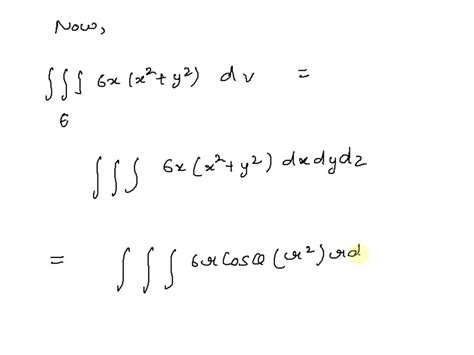 Now,
∫∫∫ 6x (x²+y²) dv =
6
∫∫∫ 6x (x²+y²) dxdydz
= ∫∫∫ 6r cosθ (r²) rd